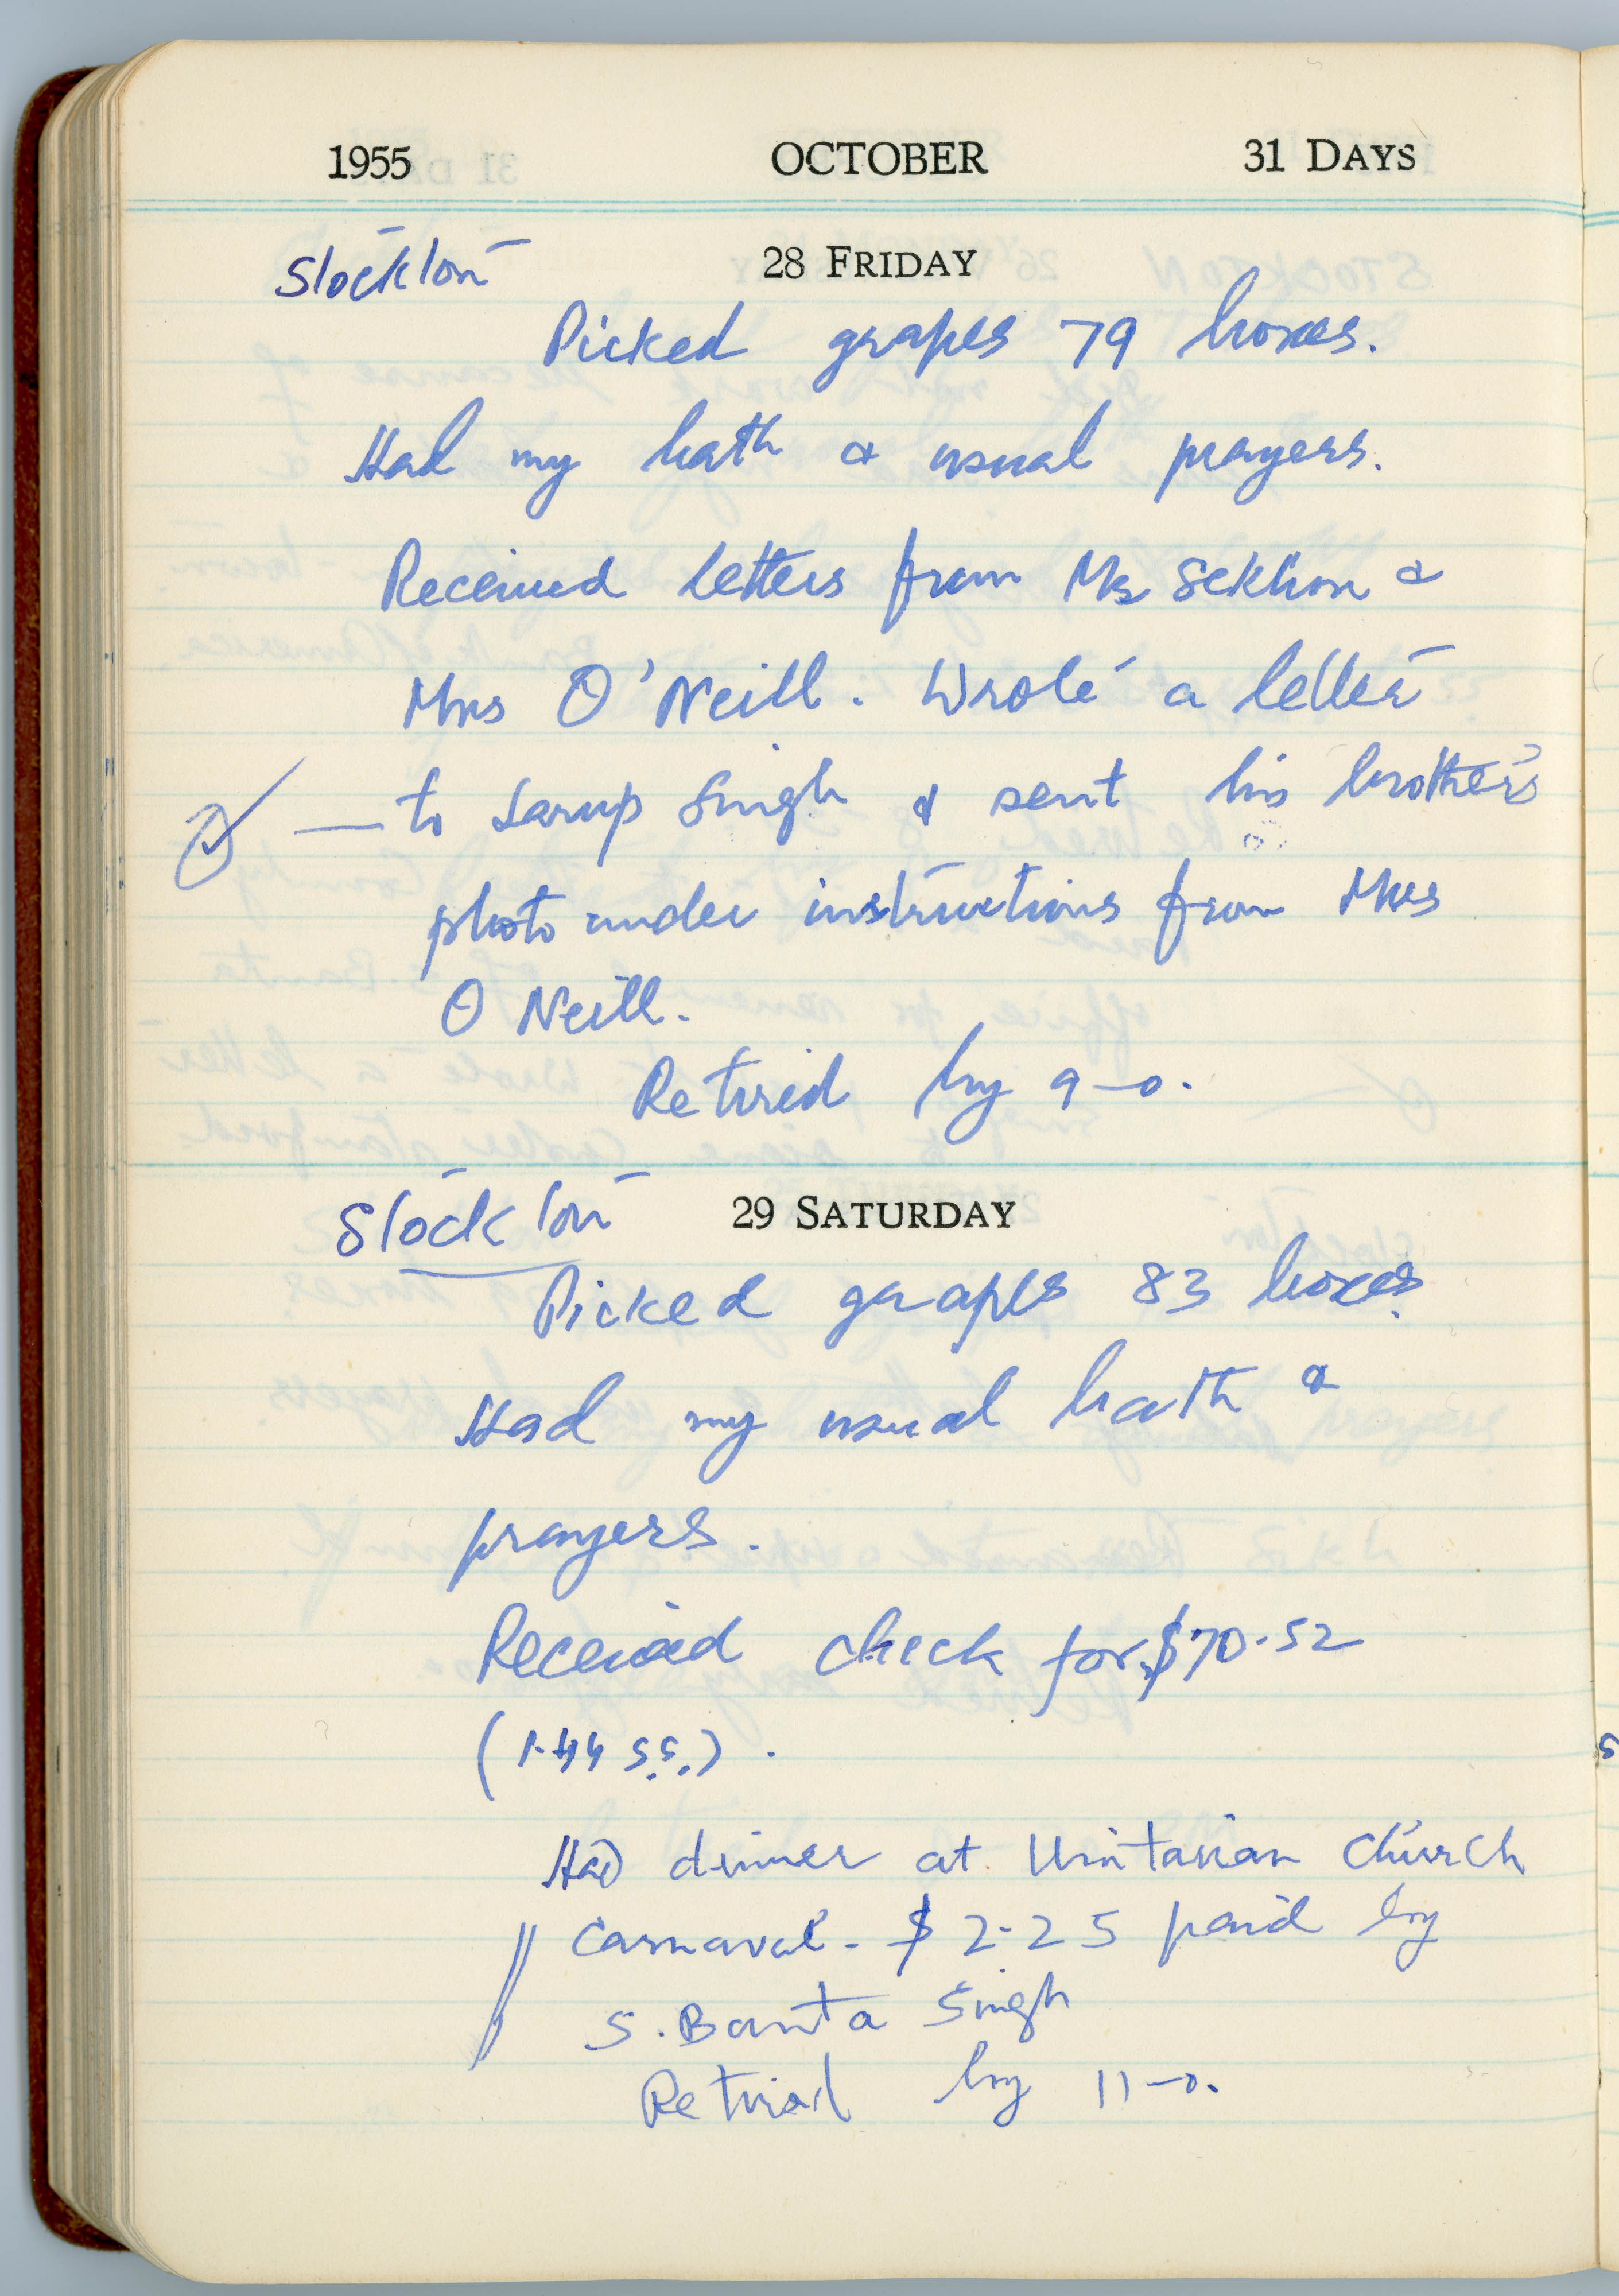 1955 OCTOBER 31 DAYS
Stockton 28 FRIDAY
Picked grapes 79 boxes.
Had my bath & usual prayers.
Received letters from Mr Sekhon &
Mrs O'Neill. Wrote a letter
— to Sarup Singh & sent his brother's
photo under instructions from Mrs
O Neill.
Retired by 9-0.
Stockton 29 SATURDAY
Picked grapes 83 boxes.
Had my usual bath &
prayers.
Received check for $70.52
(1.44 S.S.).
Had dinner at Unitarian Church
Carnaval - $2-25 paid by
S. Banta Singh
Retired by 11-0.